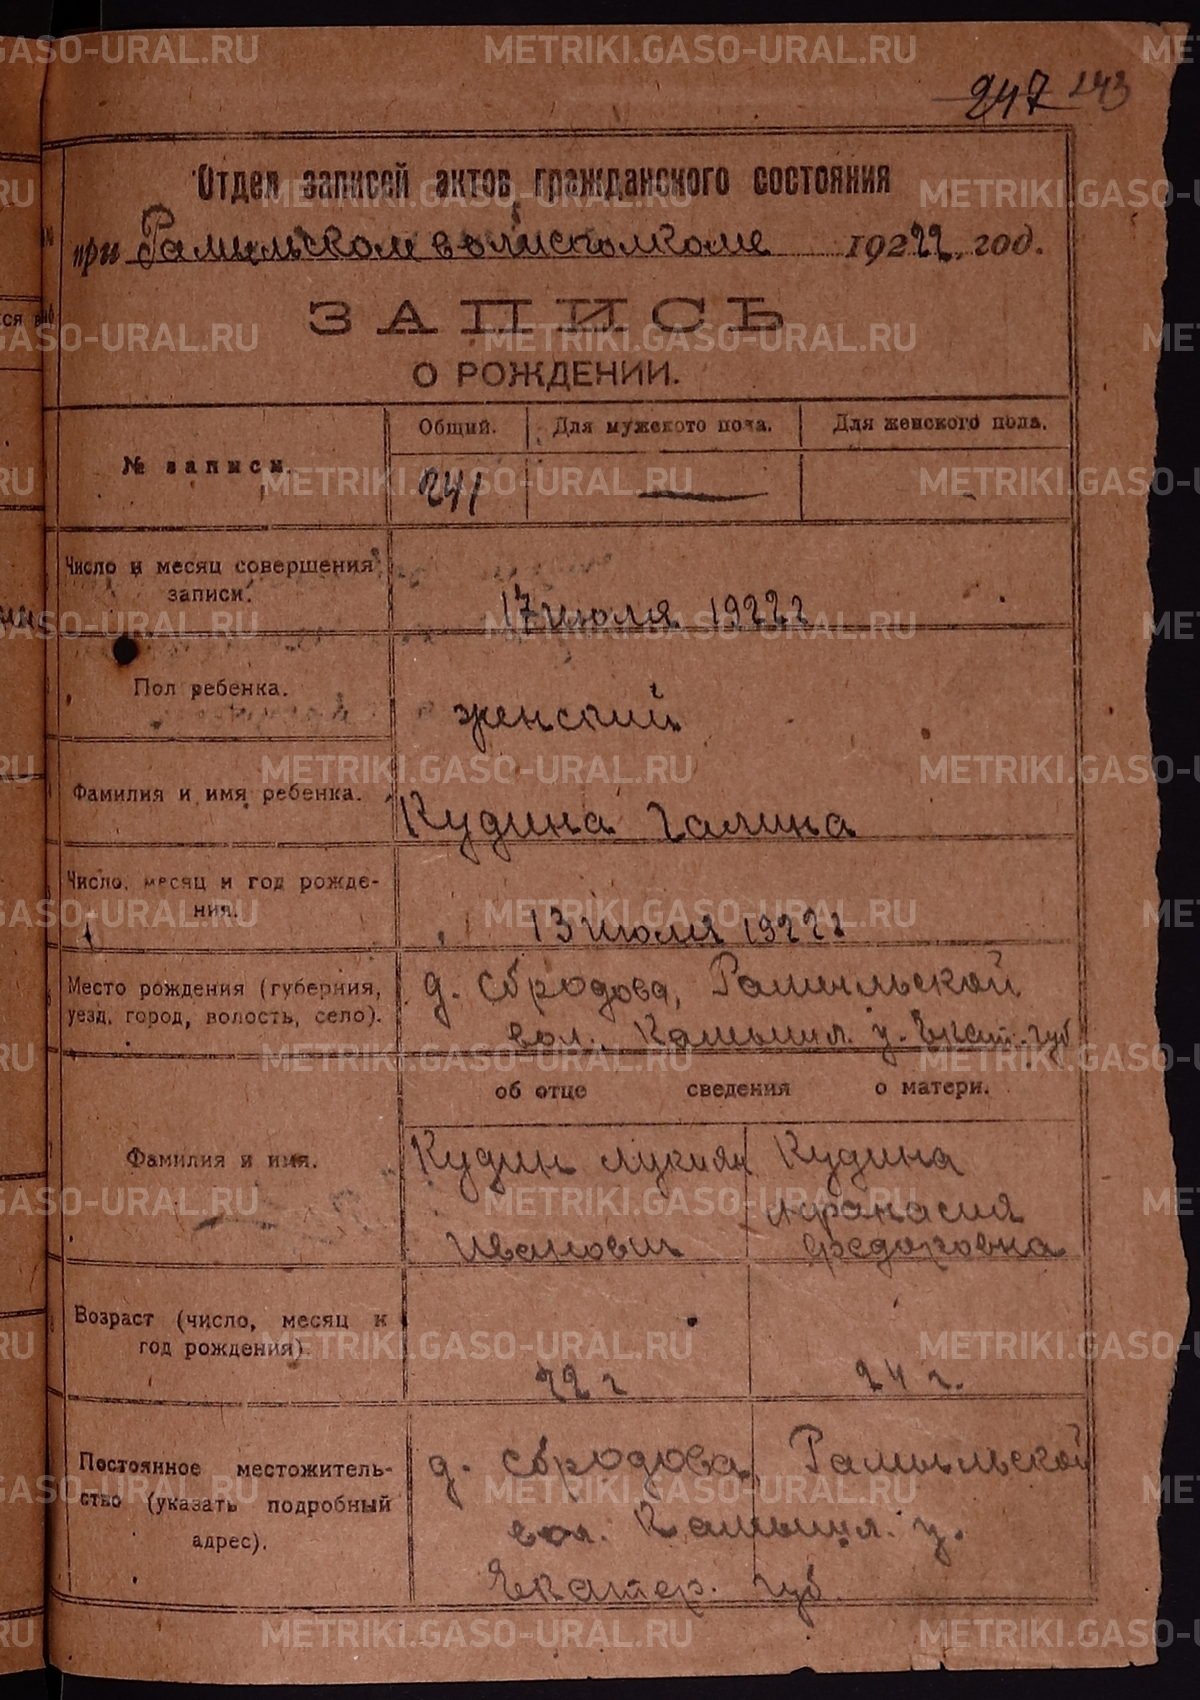 247 243
Отдел записей актов гражданского состояния
при Рамыльском волисполкоме 19222 год.
ЗАПИСЬ
О РОЖДЕНИИ.
№ записи.
Общий. Для мужского пола. Для женского пола.
241
Число и месяц совершения
записи.
17 июля 1922 г
Пол ребенка.
женский
Фамилия и имя ребенка.
Кудина Галина
Число, месяц и год рожде-
ния.
13 июля 1922 г
Место рождения (губерния,
уезд, город, волость, село).
д. Сбродова, Рамыльской
вол., Камышл. у. Екат. губ
об отце сведения о матери.
Фамилия и имя.
Кудин Лукиян
Иванович
Кудина
Афанасия
Федоровна
Возраст (число, месяц и
год рождения)
22 г
24 г.
Постоянное местожитель-
ство (указать подробный
адрес).
д. Сбродова, Рамыльской
вол. Камышл. у.
Екатер. губ.
METRIKI.GASO-URAL.RU